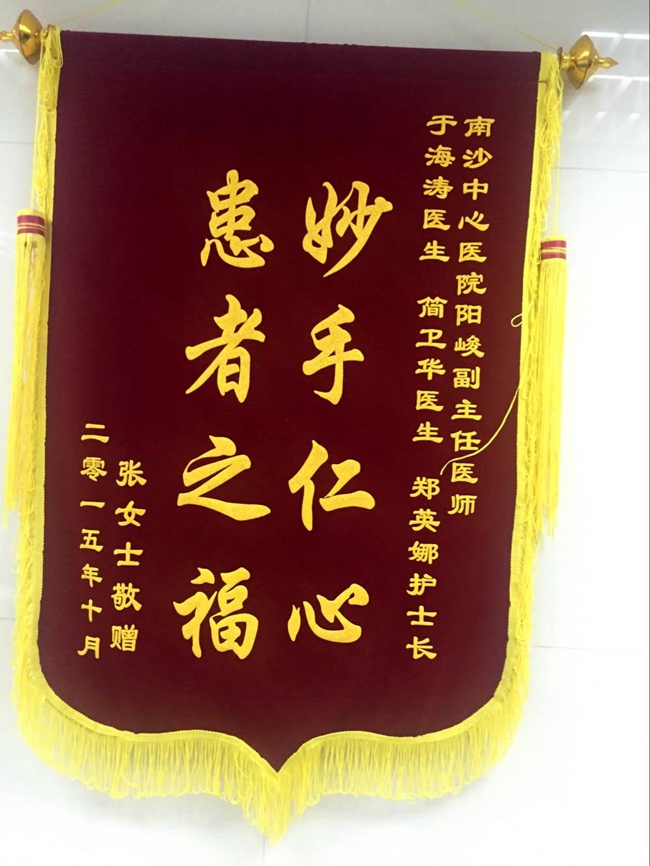 南沙中心医院阳峻副主任医师
于海涛医生 简卫华医生 郑英娜护士长
妙手仁心
患者之福
张女士敬赠
二零一五年十月